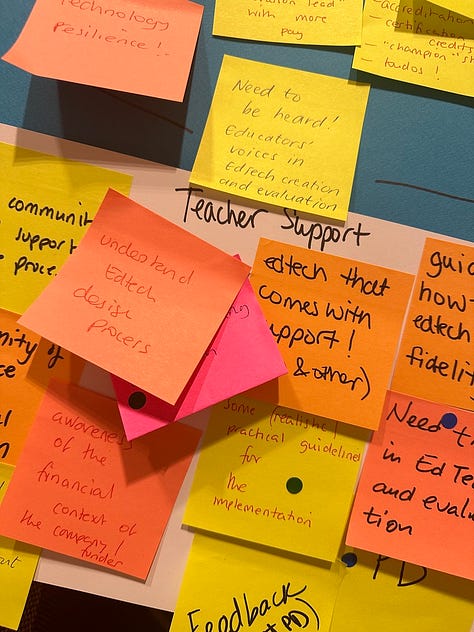 Technology
Resilience!
with more
pay
certification
credits
"champion"
kudos!
Need to
be heard!
Educators'
voices in
EdTech creation
and evaluation
Teacher Support
communit
support
proce
understand
Edtech
design
process
edtech that
comes with
upport!
& other)
guid
how-
edtech
fidelit
awareness
of the
financial
context of
the company/
funder
Some (realistic)
practical guidelines
for
the
implementation
Need
in Ed Te
and evalu
tion
Feedback
PD)
PD